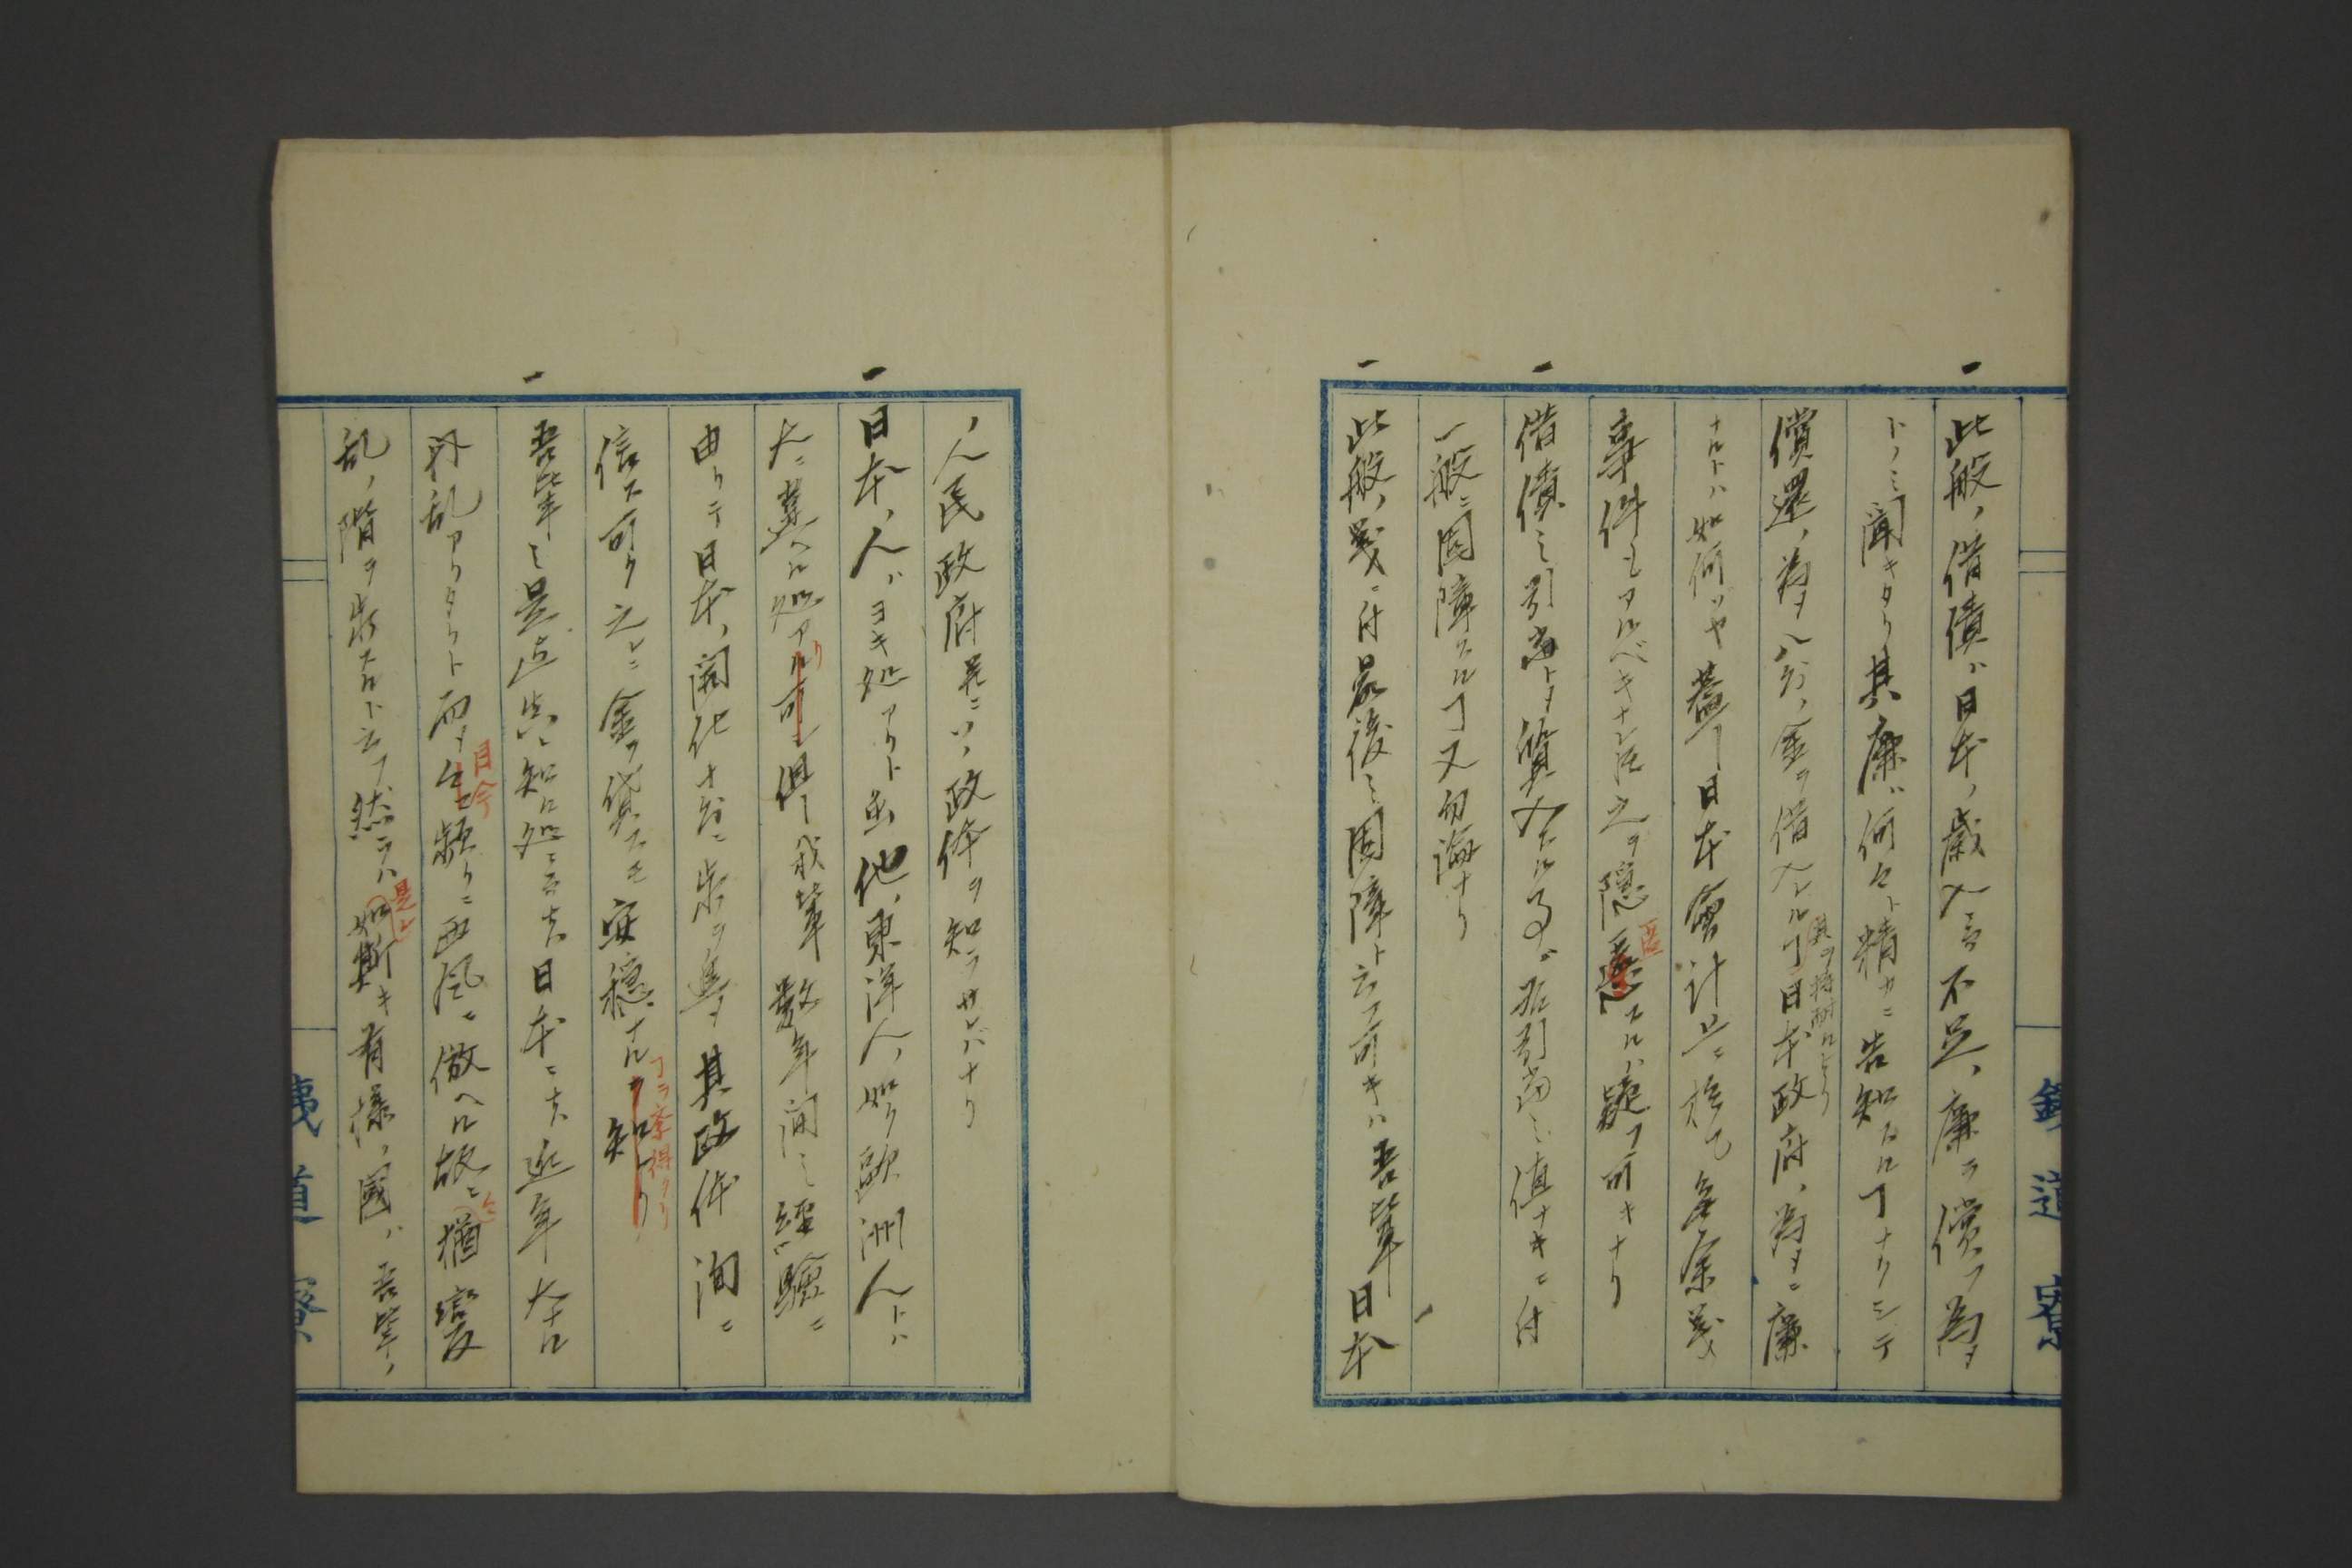 一 此般ノ借債ハ日本ノ歳入ニ不足ノ廉ヲ償フ為メ
トノミ聞キタリ其廉ハ何々ト精カニ告知スルヿナクシテ
償還ノ為メ八分ノ金ヲ借入レルヿ日本政府ノ為メニ廉
ナルトハ如何ソヤ蓋シ日本會計上ニ於テ無余義
事件モアルベキナレ𪜈之ヲ隠匿スルハ疑フ可キナリ
一 借債ニ引当トメ質入スルヿ引当ニ値ナキニ付
一般ニ固障スルヿ又勿論ナリ
一 此般ノ義ニ付最後ニ固障ト云フ可キハ吾輩日本
ノ人民政府并ニソノ政体ヲ知ラサレバナリ
一 日本ノ人ハヨキ処アリト雖他ノ東洋人ノ如ク欧洲人トハ
大ニ異ヘル処アル可シ但シ我輩数年間ニ経験ニ
由リテ日本ノ開化十分ニ歩ヲ進メ其政体洵ニ
信ス可ク之レニ金ヲ貸スモ安穏ナルヲ知レリ
ヿヲ察得タリ
一 吾輩ニ是迠知ル処ニテハ日本ニテハ近年大ナル
内乱アリタリト而メ今ニ頻リニ西風ニ倣ヘル故ニ猶変
目今
乱ノ階ヲ歩スルト云フ然ラハ如斯キ有様ノ國ハ吾輩ノ
是レ
鐵道寮
鐵道寮